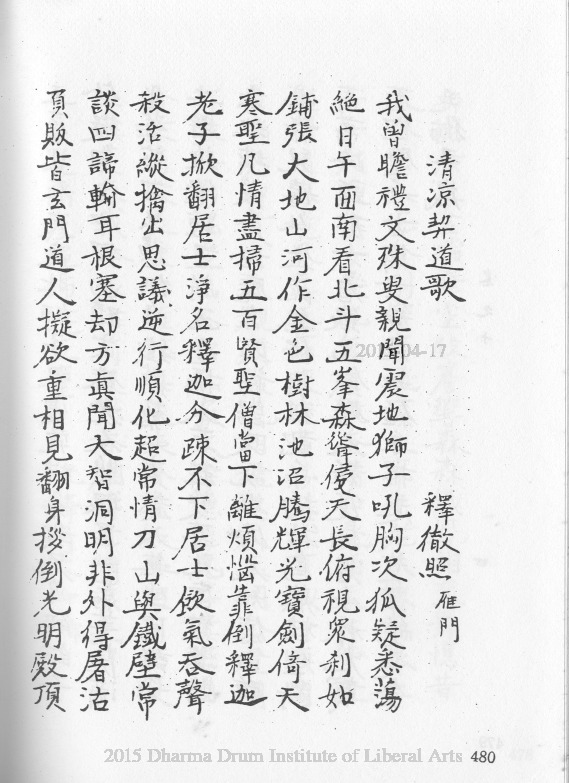 清凉契道歌
釋徹照 雁門
我曾瞻禮文殊叟親聞震地獅子吼胸次狐疑悉蕩
絕日午面南看北斗五峯森聳侵天長俯視眾刹如
鋪張大地山河作金色樹林池沼騰輝光寶劍倚天
寒聖凡情盡掃五百賢聖僧當下離煩惱靠倒釋迦
老子掀翻居士淨名釋迦分疎不下居士飲氣吞聲
殺活縱擒出思議逆行順化超常情刀山與鐵壁常
談四諦輪耳根塞却方眞聞大智洞明非外得屠沽
負販皆玄門道人擬欲重相見翻身拶倒光明殿頂
2015-04-17
2015 Dharma Drum Institute of Liberal Arts
480